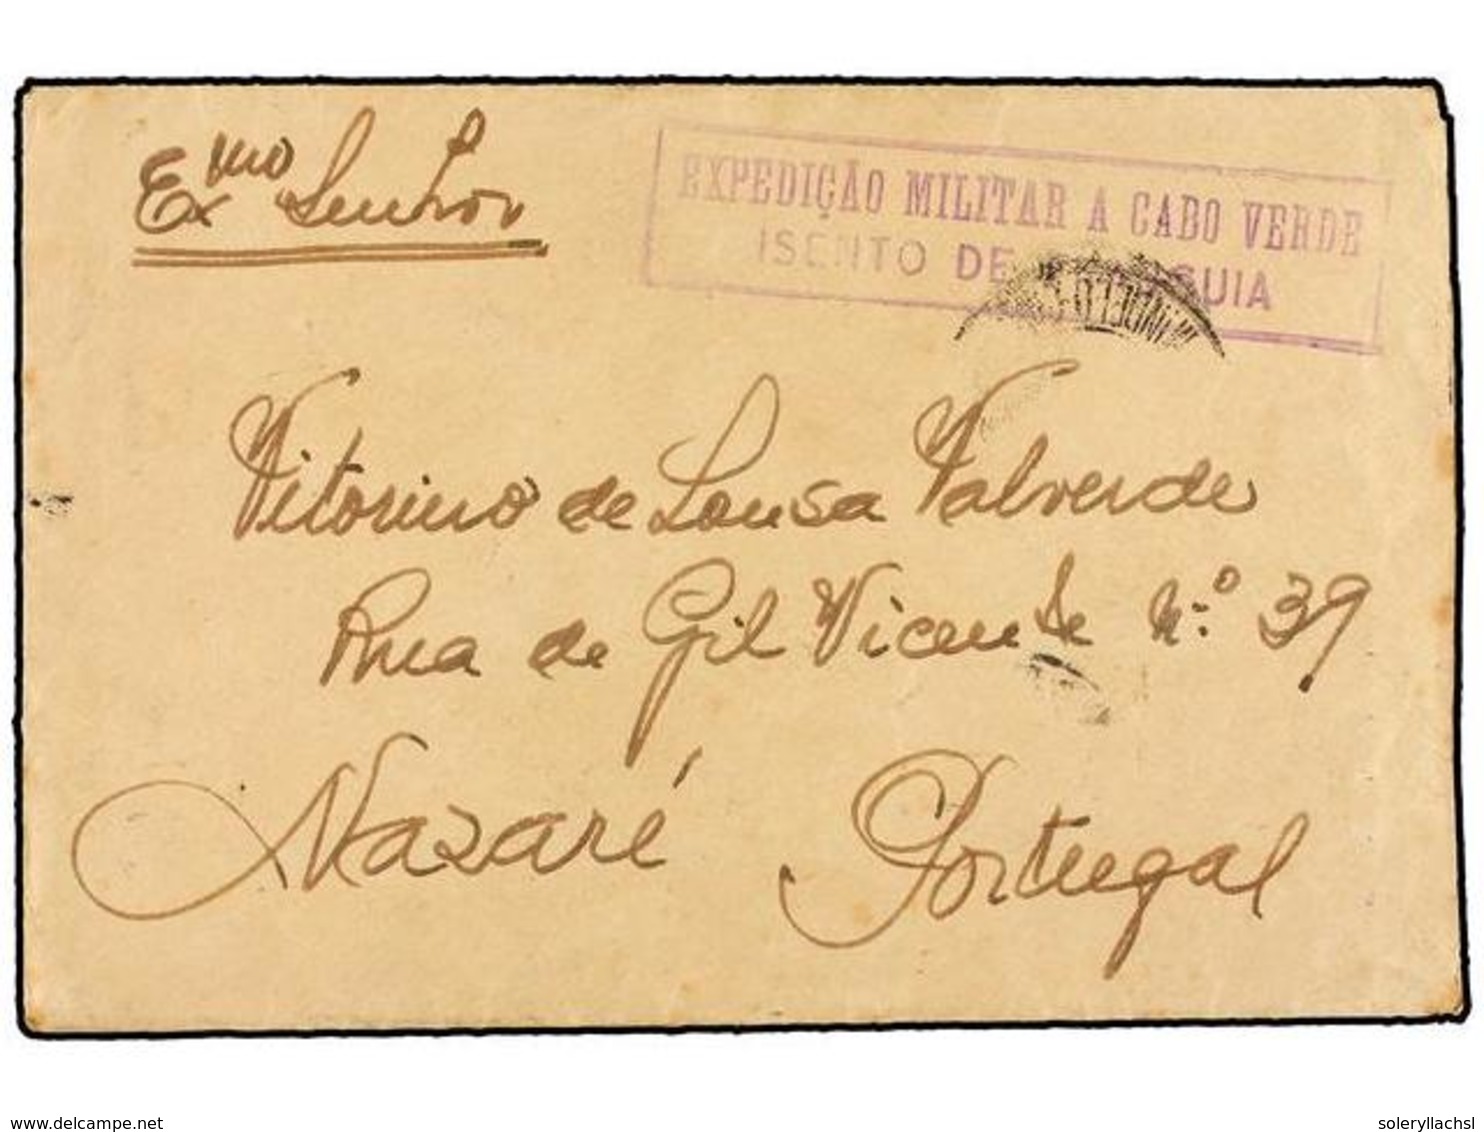 Exmo Senhor
EXPEDIÇÃO MILITAR A CABO VERDE
ISENTO DE FRANQUIA
Vitorino de Sousa Valverde
Rua de Gil Vicente N.º 39
Nazaré Portugal
delcampe.net
soleryllachsl